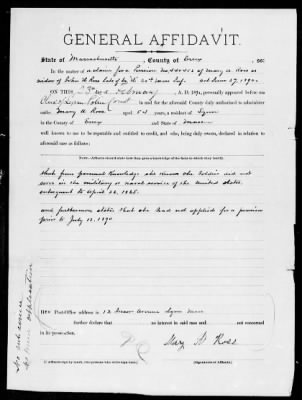 GENERAL AFFIDAVIT.
State of Massachusetts, County of Essex, SS:
In the matter of a claim for a Pension No 444452 of Mary A. Ross as
widow of John H. Ross late of Co. 20th Mass Inf. Act June 27, 1890
ON THIS 23rd February, A. D. 189, personally appeared before me
Clerk of Lynn Police Court in and for the aforesaid County duly authorized to administer
oaths Mary A Ross aged 54 years, a resident of Lynn
in the County of Essex and State of Mass
well known to me to be reputable and entitled to credit, and who, being duly sworn, declares in relation
to aforesaid case as follows:
NOTE.—Affiants should state how they gain a knowledge of the facts to which they testify.
that from personal knowledge she knows the Soldier did not
serve in the military or naval service of the United States
subsequent to April 26, 1865.
and furthermore states that she had not applied for a pension
prior to July 12, 1890.
No sub service
Post-Office address is 12 Avenue Lynn Mass
further declare that no interest in said case and not concerned
in its prosecution.
Mary A Ross
(Signatures of Affiants.)